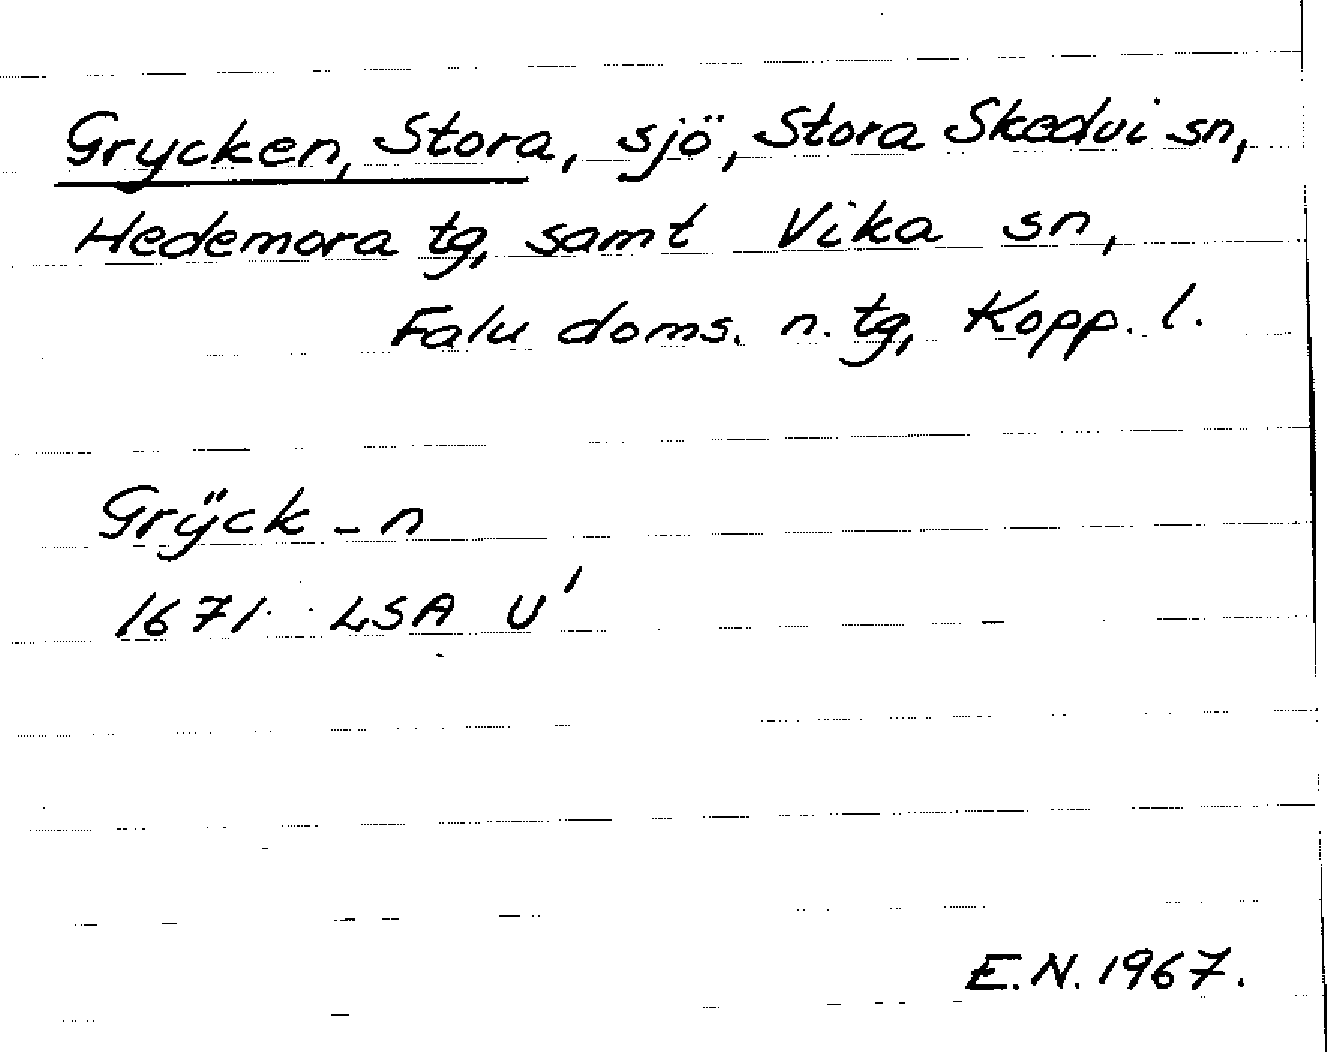 Grycken, Stora, sjö, Stora Skedvi sn,
Hedemora tg, samt Vika sn,
Falu doms. n. tg, Kopp. l.
Grÿck - n
1671 LSA U'
E.N. 1967.